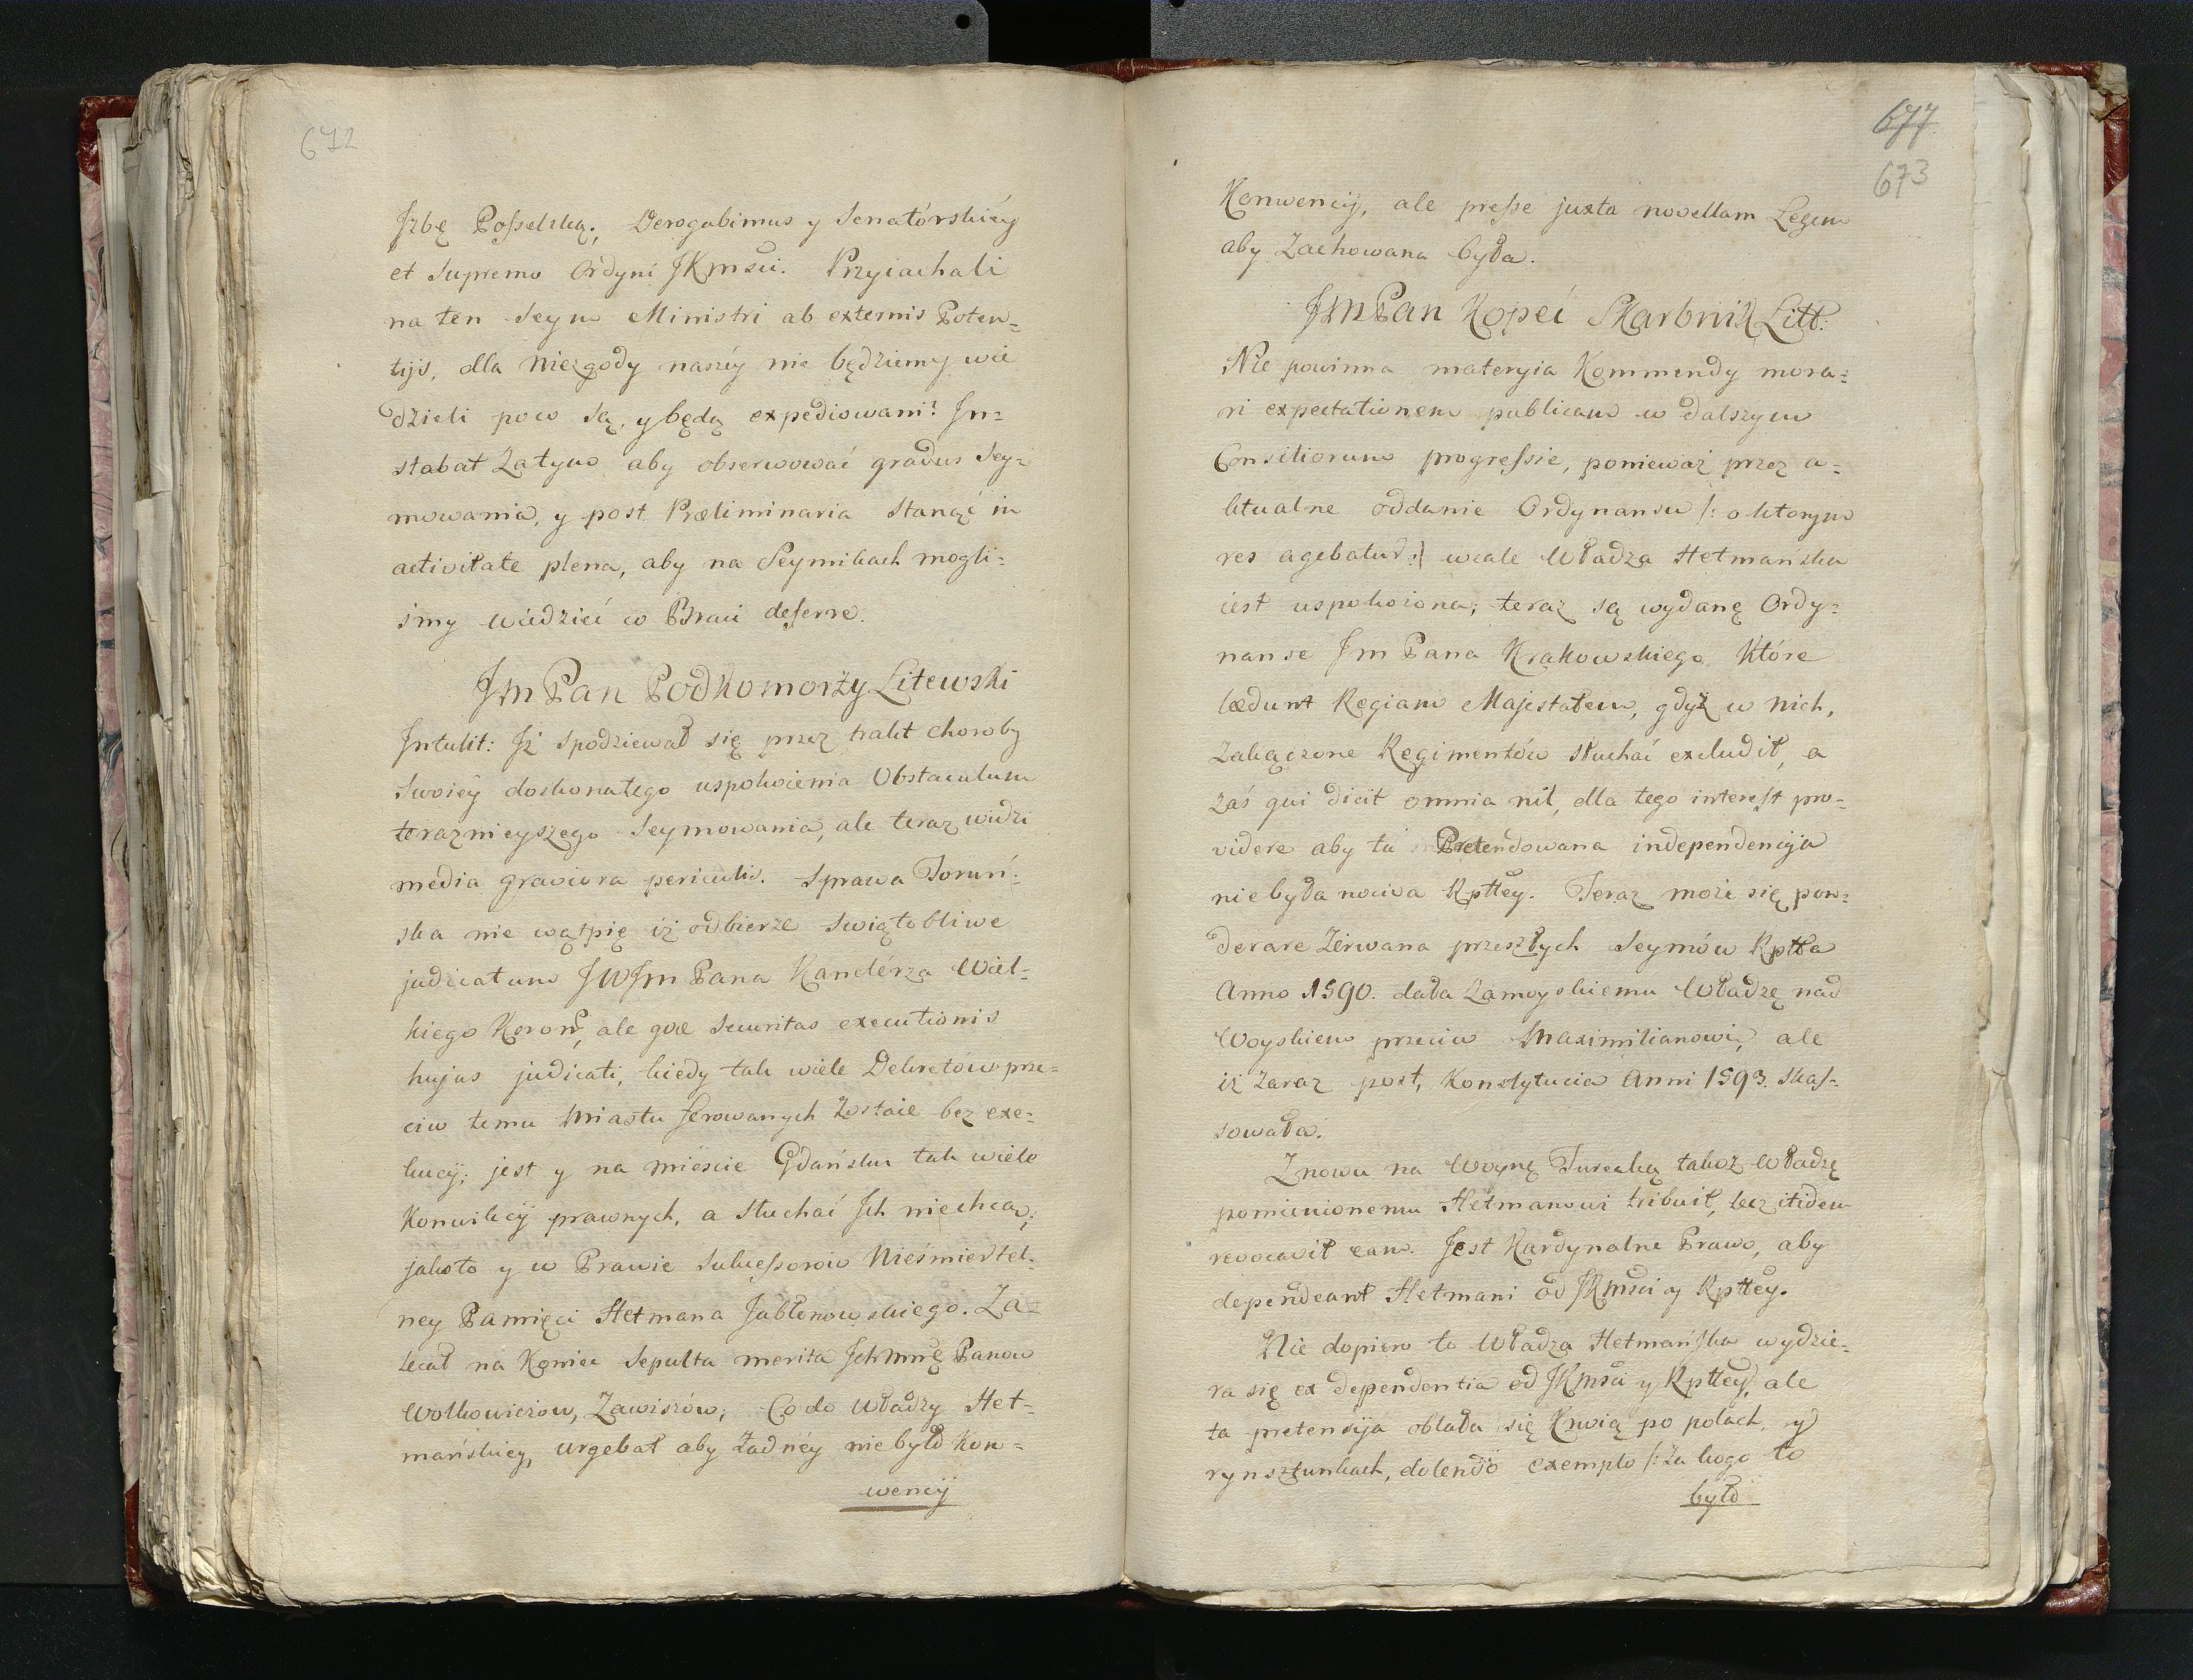 672
Jzbę Posselską; Derogabimus y Senatórskiéy
et Supremo Ordyni JKmśći. Przyiachali
na ten Seym Ministri ab externis Poten=
tijs, dla Niezgody naszéy nie będziemy wie
dzieli poco są, y będą expediowani? In=
stabat Zatym aby obserwować gradus Sey=
mowania, y post Præliminaria Stanąć in
activitate plena, aby na Seymikach mogli=
smy wiedzieć co Braci deferre.
Jm Pan Podkomorzy Litewski
Intulit: Iż Spodziewał się przez trakt choroby
Swoiéy doskonałego uspokoienia Obstaculum
teraznieyszego Seymowania, ale teraz widzi
media graviora periculis. Sprawa Toruń=
ska nie wątpię iż odbierze Swiątobliwe
judicatum JWJm Pana Kanclérza Wiel=
kiego Koron, ale quæ Securitas executionis
hujus judicati, kiedy tak wiele Dekretów prze=
ciw temu Miastu ferowanych Zostaie bez exe=
kucij; jest y na mieście Gdańsku tak wiele
Konwikcij prawnych, a Słuchać Ich niechcą;
jakoto y w Prawie Sukcessorów Nieśmiertel=
ney Pamięci Hetmana Jabłonowskiego. Za=
lecał na Koniec Sepulta merita Ichmę Panow
Wołłowiczow, Zawiszów; Co do Władzy Het=
mańskiey, urgebat aby żadnéy niebyło Kon=
wencij
677
673
Konwencij, ale presse juxta novellam Legem
aby Zachowana była.
Jm Pan Kopeć Skarbnik Litt:
Nie powinna materyia Kommendy mora=
ri expectationem publicam w dalszym
Consiliorum progressie, ponieważ przez a=
ktualne oddanie Ordynansu /: o ktorym
res agebatur :/ wcale Władza Hetmańska
iest uspokoiona; teraz są wydanę Ordy=
nanse Jm Pana Krakowskiego, Które
lædunt Regiam Majestatem, gdyż w nich,
Zaciączone Regimentów słuchać excludit, a
zaś qui dicit omnia nil, dla tego interest pro=
videre aby ta Pretendowana independencija
niebyła nociva Rptłey. Teraz może się pon=
derare Zerwana przeszłych Seymów Rptła
Anno 1590. dała Zamoyskiemu Władzę nad
Woyskiem przeciw Maximilianowi, ale
iż Zaraz post, Konstytucia Anni 1593. skas=
sowała.
Znowu na Woynę Turecką takoż Władzę
pomienionemu Hetmanowi tribuit, lecz itidem
revocavit eam. Jest Kardynalne Prawo, aby
dependeant Hetmani od JKmśći y Rptłey.
Nie dopiero to Władza Hetmańska wydzie=
ra się ex dependentia od JKmśći y Rptłey, ale
ta pretensija oblała się Krwią po polach, y
rynsztunkach, dolendo exemplo /: Za kogo to
było